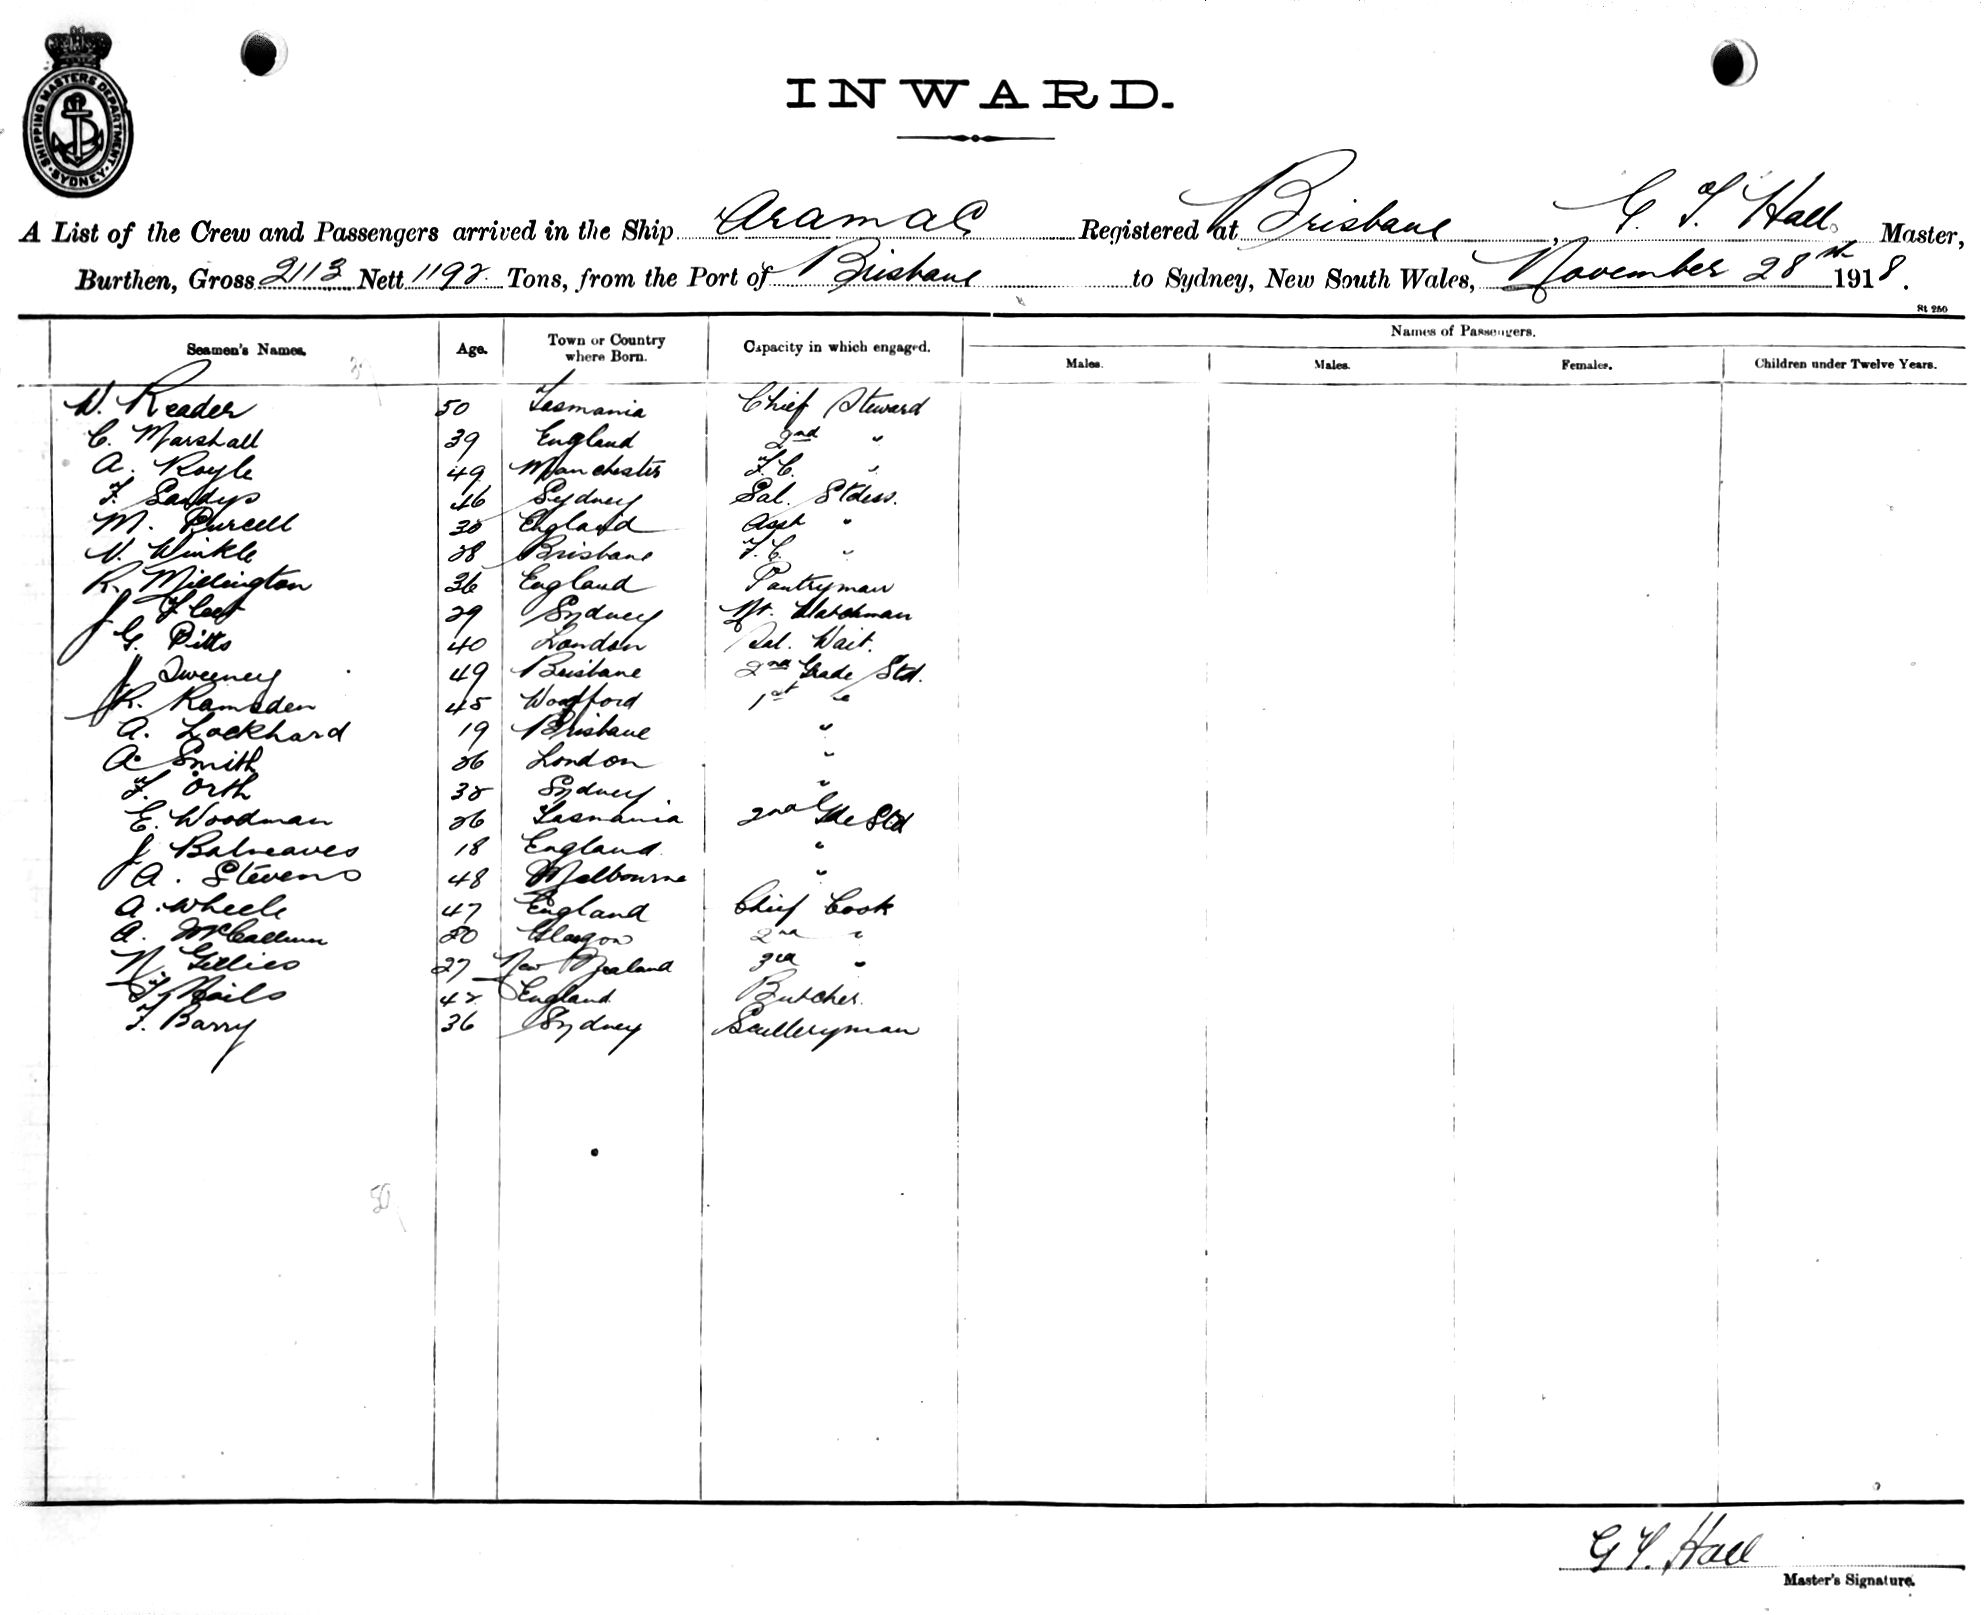 SHIPPING MASTERS DEPARTMENT
SYDNEY
INWARD.
A List of the Crew and Passengers arrived in the Ship Aramac Registered at Brisbane, G. F. Hall. Master,
Burthen, Gross 2113 Nett 1192 Tons, from the Port of Brisbane to Sydney, New South Wales, November 28th 1918.
St 250
Seamen's Names. Age. Town or Country where Born. Capacity in which engaged. Names of Passengers.
Males. Males. Females. Children under Twelve Years.
W. Reader 50 Tasmania Chief Steward
C. Marshall 39 England 2nd "
A. Royle 49 Manchester F.C. "
F. Sandys 46 Sydney Sal. Stdess.
M. Purcell England Asst "
V. Winkle 28 Brisbane F.C. "
R. Millington 36 England Pantryman
J. Fleet 29 Sydney Nt. Watchman
G. Pitts 40 London Sal. Wait.
J. Sweeney 49 Brisbane 2nd Grade Std.
R. Ramsden 45 Woodford 1st "
A. Lockhard 19 Brisbane "
A. Smith 26 London "
F. Orth Sydney "
E. Woodman 26 Tasmania 2nd Gde Std
J. Balneaves 18 England "
A. Stevens 48 Melbourne "
A. Wheele 47 England Chief Cook
A. McCallum 20 Glasgow 2nd "
N. Gillies 27 New Zealand 3rd "
F. Hails 42 England Butcher.
F. Barry 36 Sydney Sculleryman
G F. Hall
Master's Signature.